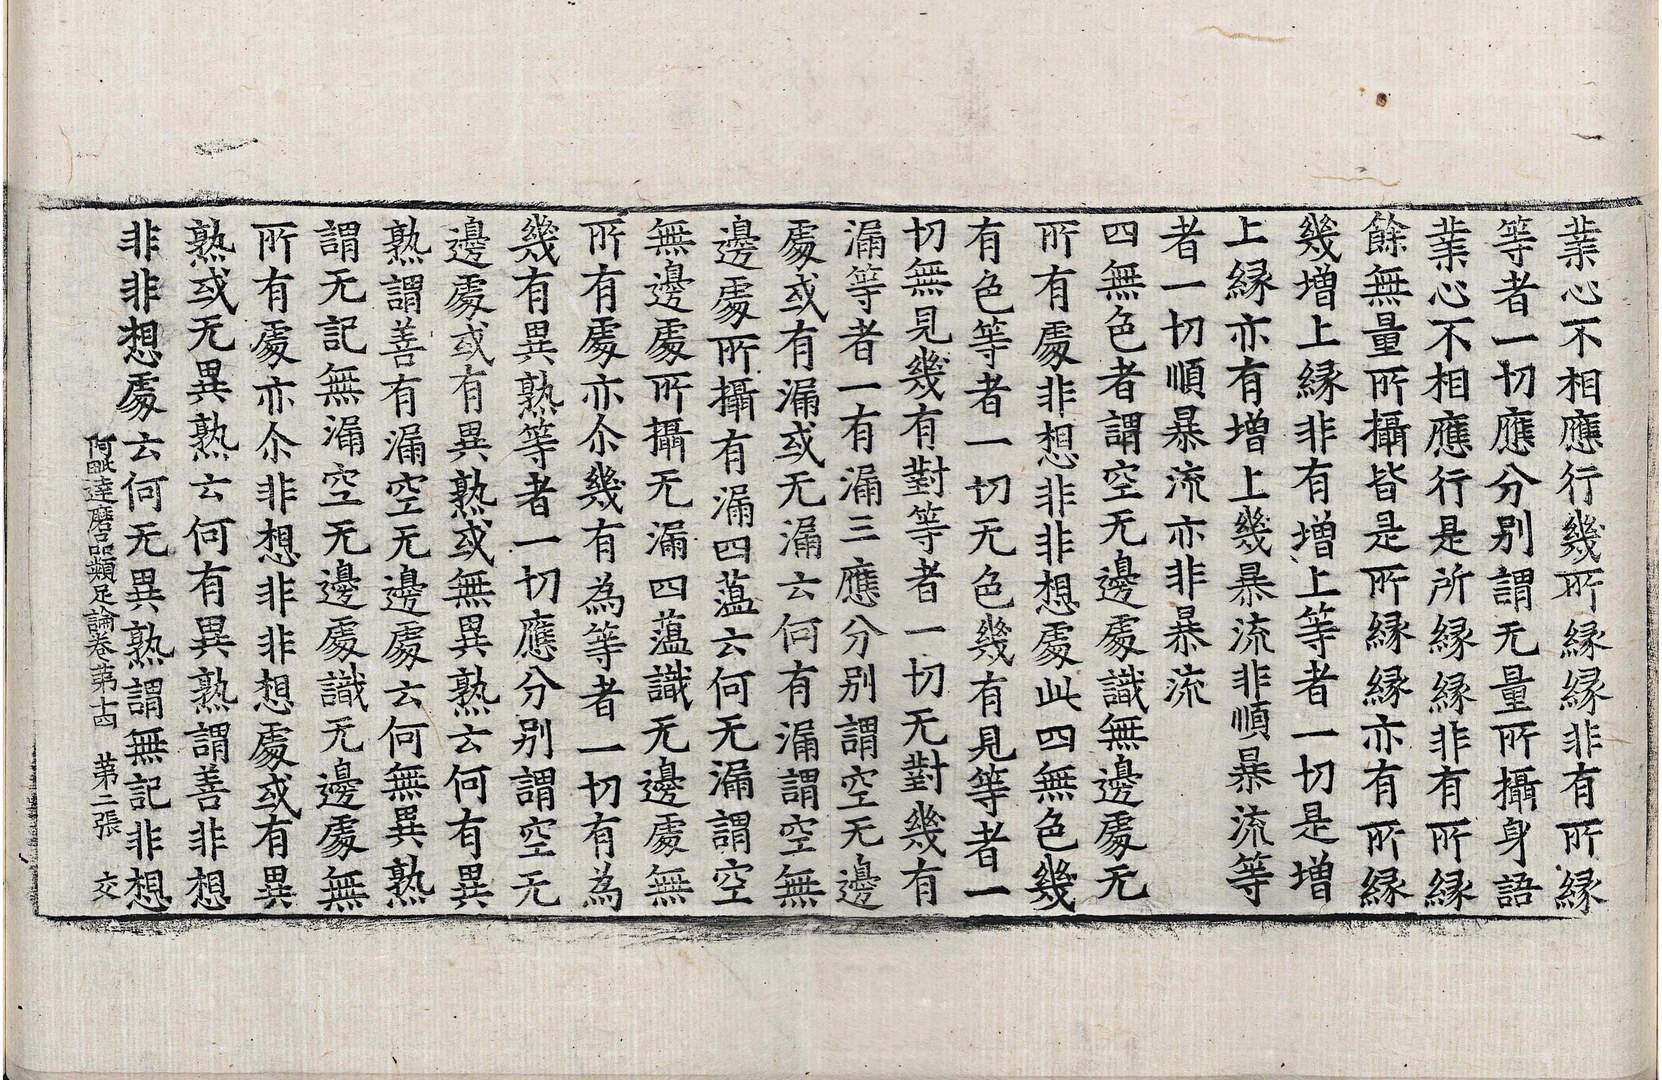 業心不相應行幾所縁縁非有所縁
等者一切應分别謂无量所攝身語
業心不相應行是所縁縁非有所縁
餘無量所攝皆是所縁縁亦有所縁
幾增上縁非有增上等者一切是增
上縁亦有增上幾暴流非順暴流等
者一切順暴流亦非暴流
四無色者謂空无邊處識無邊處无
所有處非想非非想處此四無色幾
有色等者一切无色幾有見等者一
切無見幾有對等者一切无對幾有
漏等者一有漏三應分别謂空无邊
處或有漏或无漏云何有漏謂空無
邊處所攝有漏四蕰云何无漏謂空
無邊處所攝无漏四蕰識无邊處無
所有處亦尒幾有為等者一切有為
幾有異熟等者一切應分别謂空无
邊處或有異熟或無異熟云何有異
熟謂善有漏空无邊處云何無異熟
謂无記無漏空无邊處識无邊處無
所有處亦尒非想非非想處或有異
熟或无異熟云何有異熟謂善非想
非非想處云何无異熟謂無記非想
阿毗達磨品類足論卷第十四　第二張　交